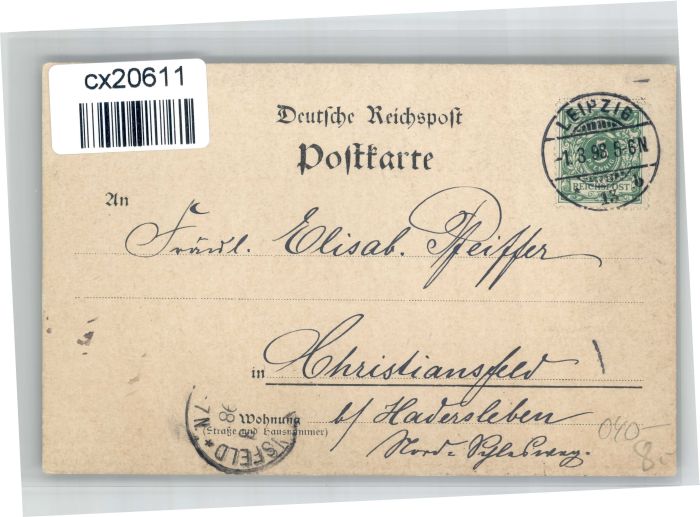 cx20611
Deutsche Reichspost
Postkarte
LEIPZIG
-1.3.98.5-6N
13. b
REICHSPOST
An
Fräul. Elisab. Pfeiffer
in Christiansfeld
b/ Hadersleben
Nord-Schleswig.
Wohnung
(Straße und Hausnummer)
SFELD *
98
-7N.
040-
8.-